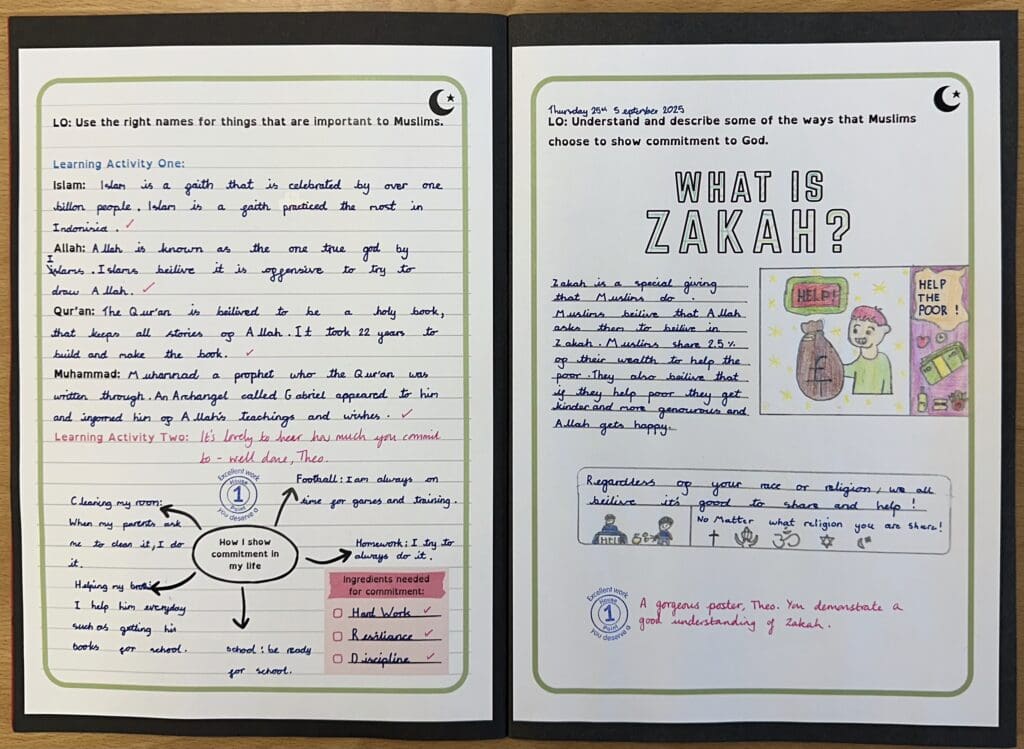 LO: Use the right names for things that are important to Muslims.
Learning Activity One:
Islam: Islam is a faith that is celebrated by over one
billon people. Islam is a faith practiced the most in
Indonisia.
Allah: Allah is known as the one true god by
Islams. Islams beilive it is offensive to try to
draw Allah.
Qur'an: The Qur'an is beilived to be a holy book,
that keeps all stories of Allah. It took 22 years to
build and make the book.
Muhammad: Muhammad a prophet who the Qur'an was
written through. An Archangel called Gabriel appeared to him
and informed him of Allah's teachings and wishes.
Learning Activity Two: It's lovely to hear how much you commit
to - well done, Theo.
Excellent work
House
1
Point
you deserve a
Football: I am always on
time for games and training.
Cleaning my room:
When my parents ask
me to clean it, I do
it.
How I show
commitment in
my life
Homework: I try to
always do it.
Helping my
I help him everyday
such as getting his
books for school.
school: be ready
for school.
Ingredients needed
for commitment:
Hard Work
Resiliance
Discipline
Thursday 25th September 2025
LO: Understand and describe some of the ways that Muslims
choose to show commitment to God.
WHAT IS
ZAKAH?
Zakah is a special giving
that Muslims do.
Muslims beilive that Allah
asks them to beilive in
Zakah. Muslims share 2.5%
of their wealth to help the
poor. They also beilive that
if they help poor they get
kinder and more genourous and
Allah gets happy.
HELP!
£
HELP
THE
POOR!
Regardless of your race or religion, we all
beilive it's good to share and help!
HELP
No Matter what religion you are share!
Excellent work
House
1
Point
you deserve a
A gorgeous poster, Theo. You demonstrate a
good understanding of Zakah.